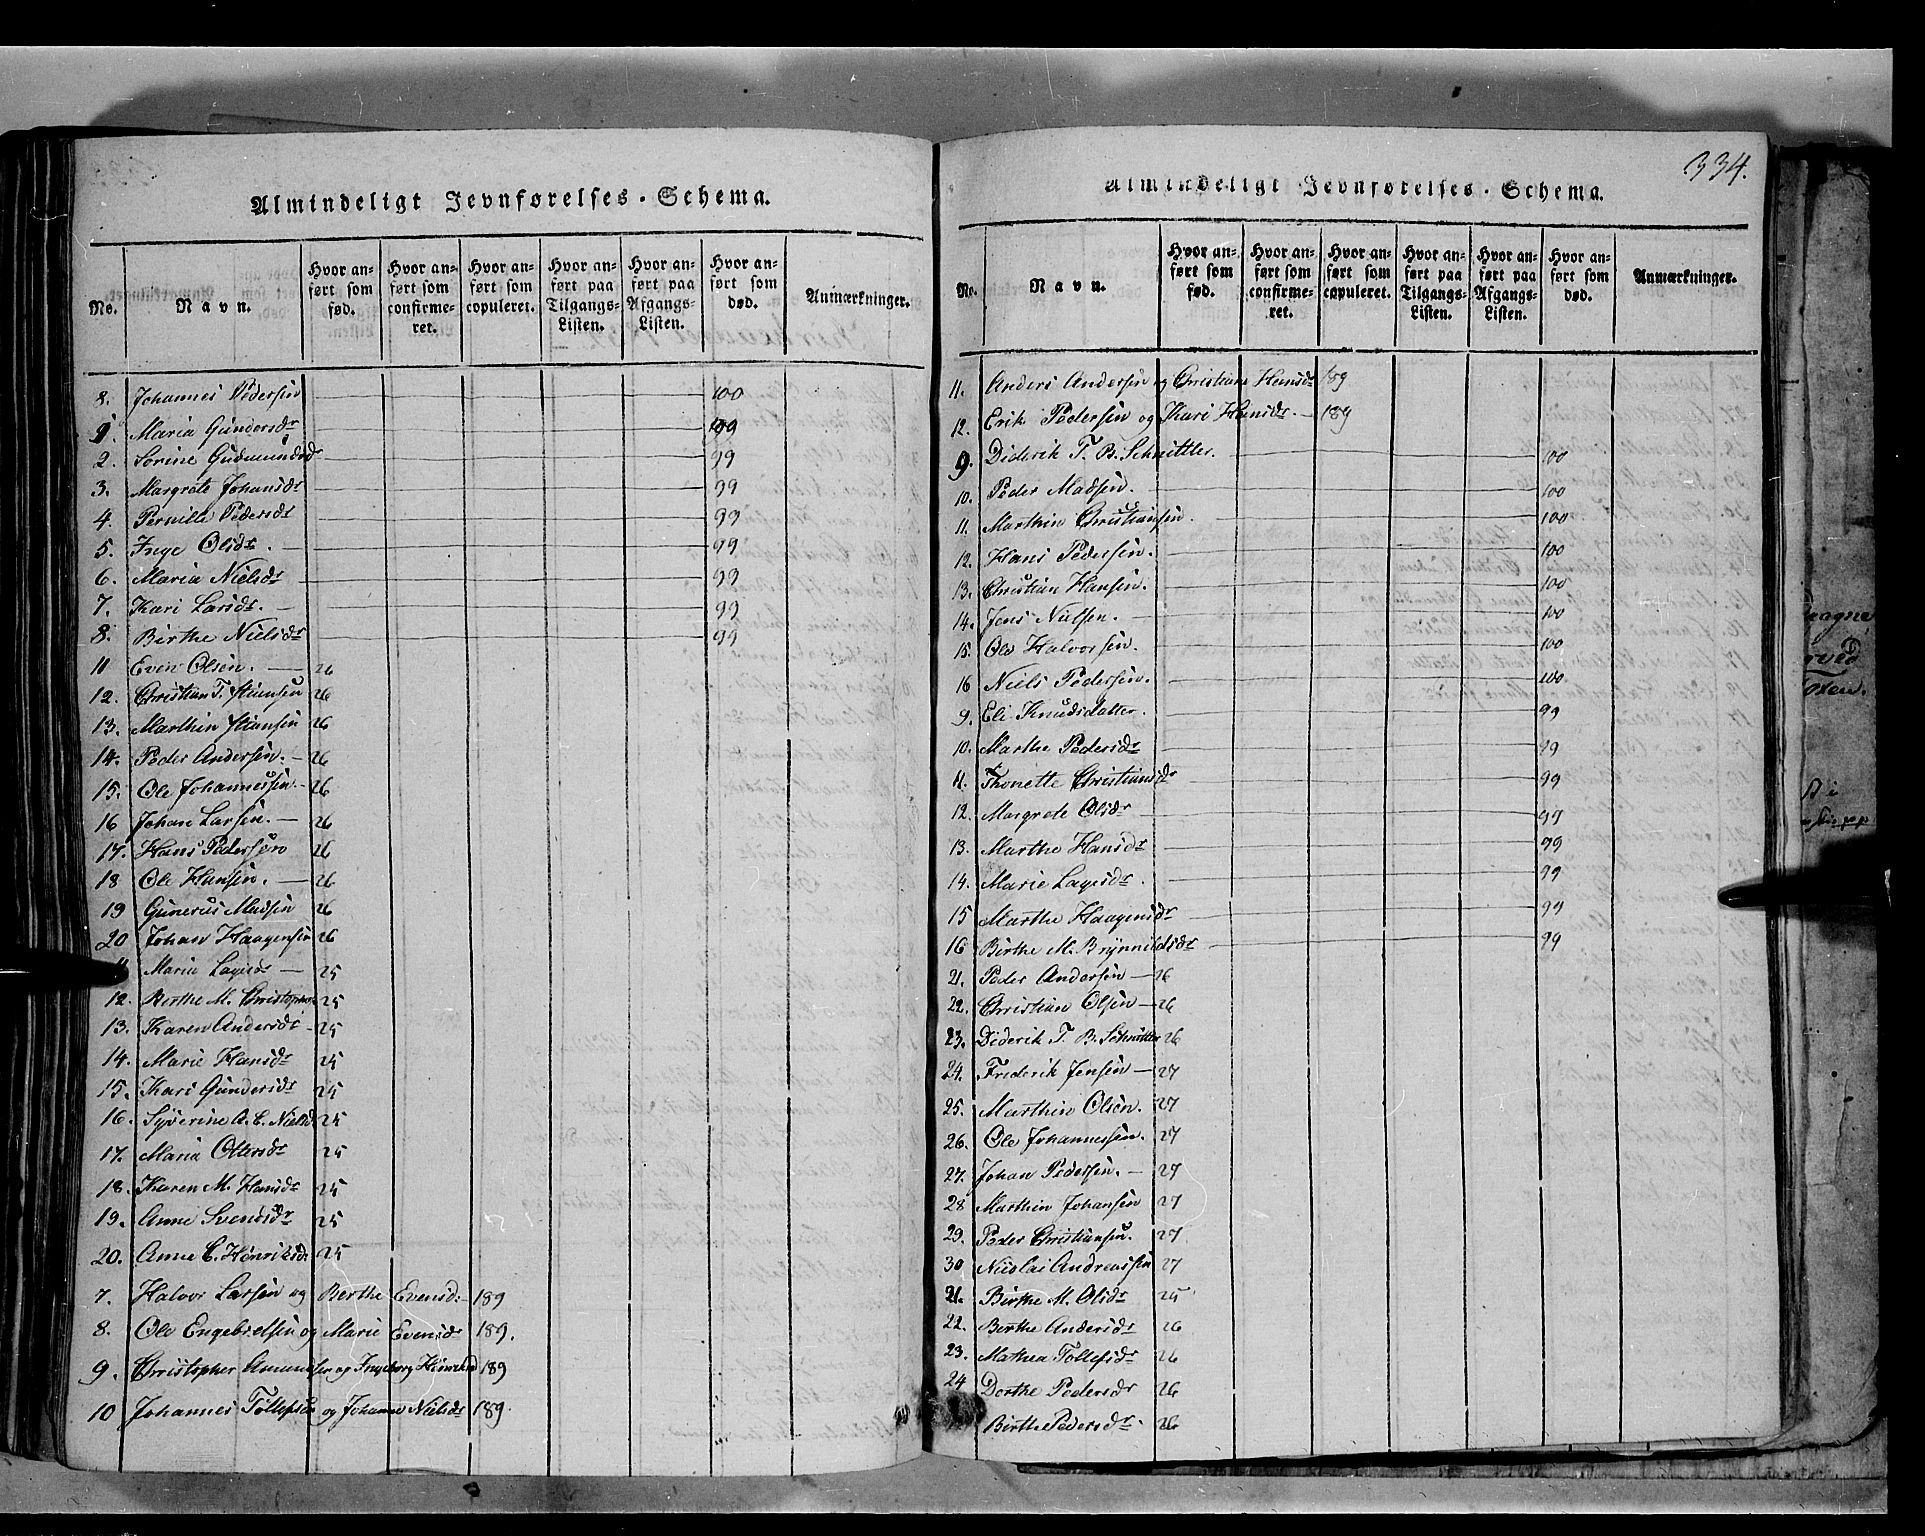 334.
Almindeligt Jevnførelses-Schema.
No.
Navn.
Hvor anført som fød.
Hvor anført som confirmeret.
Hvor anført som copuleret.
Hvor anført paa Tilgangs-Listen.
Hvor anført paa Afgangs-Listen.
Hvor anført som død.
Anmærkninger.
8. Johannes Pedersen 100
1. Maria Gundersdr 99
2. Sorine Gudmundsdr 99
3. Margrete Johansdr 99
4. Pernille Pedersdr 99
5. Inge Olsdr. 99
6. Maria Nielsdr 99
7. Kari Larsdr. 99
8. Birthe Nielsdr 99
11 Even Olsen. 26
12. Christian T. 26
13. Marthin 26
14. Peder Andersen. 26
15. Ole Johannessen. 26
16 Johan Larsen. 26
17. Hans Pedersen 26
18 Ole Hansen. 26
19 Gunerus Madsen 26
20 Johan Haagensen 26
Maria Lagesdr 25
12. Berthe M. Christophersdr 25
13. Karen Andersdr 25
14. Marie Hansdr 25
15. Kari Gundersdr 25
16. Syverine A. E. Nielsd. 25
17. Maria Ottersdr 25
18. Karen M. Hansdr 25
19. Anne Svendsdr 25
20. Anne C. Henriksdr 25
7. Halvor Larsen og Berthe Evensd. 189
8. Ole Engebretsen og Marie Evensdr 189.
9. Christopher Amundsen og Ingeborg 189
10 Johannes Tollefsen og Johanne Nielsdr 189.
Almindeligt Jevnførelses-Schema.
No.
Navn.
Hvor anført som fød.
Hvor anført som confirmeret.
Hvor anført som copuleret.
Hvor anført paa Tilgangs-Listen.
Hvor anført paa Afgangs-Listen.
Hvor anført som død.
Anmærkninger.
11. Anders Andersen og Christiane Hansdr 189
12. Erik Pedersen og Kari Hansdr. 189
9. Diderik T. B. Schnittler. 100
10. Peder Madsen. 100
11. Marthin Christiansen. 100
12. Hans Pedersen. 100
13. Christian Hansen. 100
14. Jens Nielsen. 100
15. Ole Halvorsen. 100
16 Niels Pedersen. 100
9. Eli Knudsdatter. 99
10. Marthe Pedersdr 99
11. Thonette Christiansdr 99
12. Margrete Olsdr 99
13. Marthe Hansdr 99
14. Marie Lagesdr. 99
15 Marthe Haagensdr 99
16 Birthe M. Brynnildsdr 99
21. Peder Andersen 26
22. Christian Olsen 26
23. Diderik T. B. Schnittler 26
24. Frederik Jensen 27
25. Marthin Olsen. 27
26. Ole Johannessen. 27
27. Johan Pedersen. 27
28 Marthin Johansen 27
29. Peder Christiansen. 27
30 Nicolai Andreassen 27
21. Birthe M. Olsdr 25
22. Berthe Andersdr 26
23. Mathea Tollefsdr 26
24 Dorthe Pedersdr 26
Birthe Pedersdr. 26